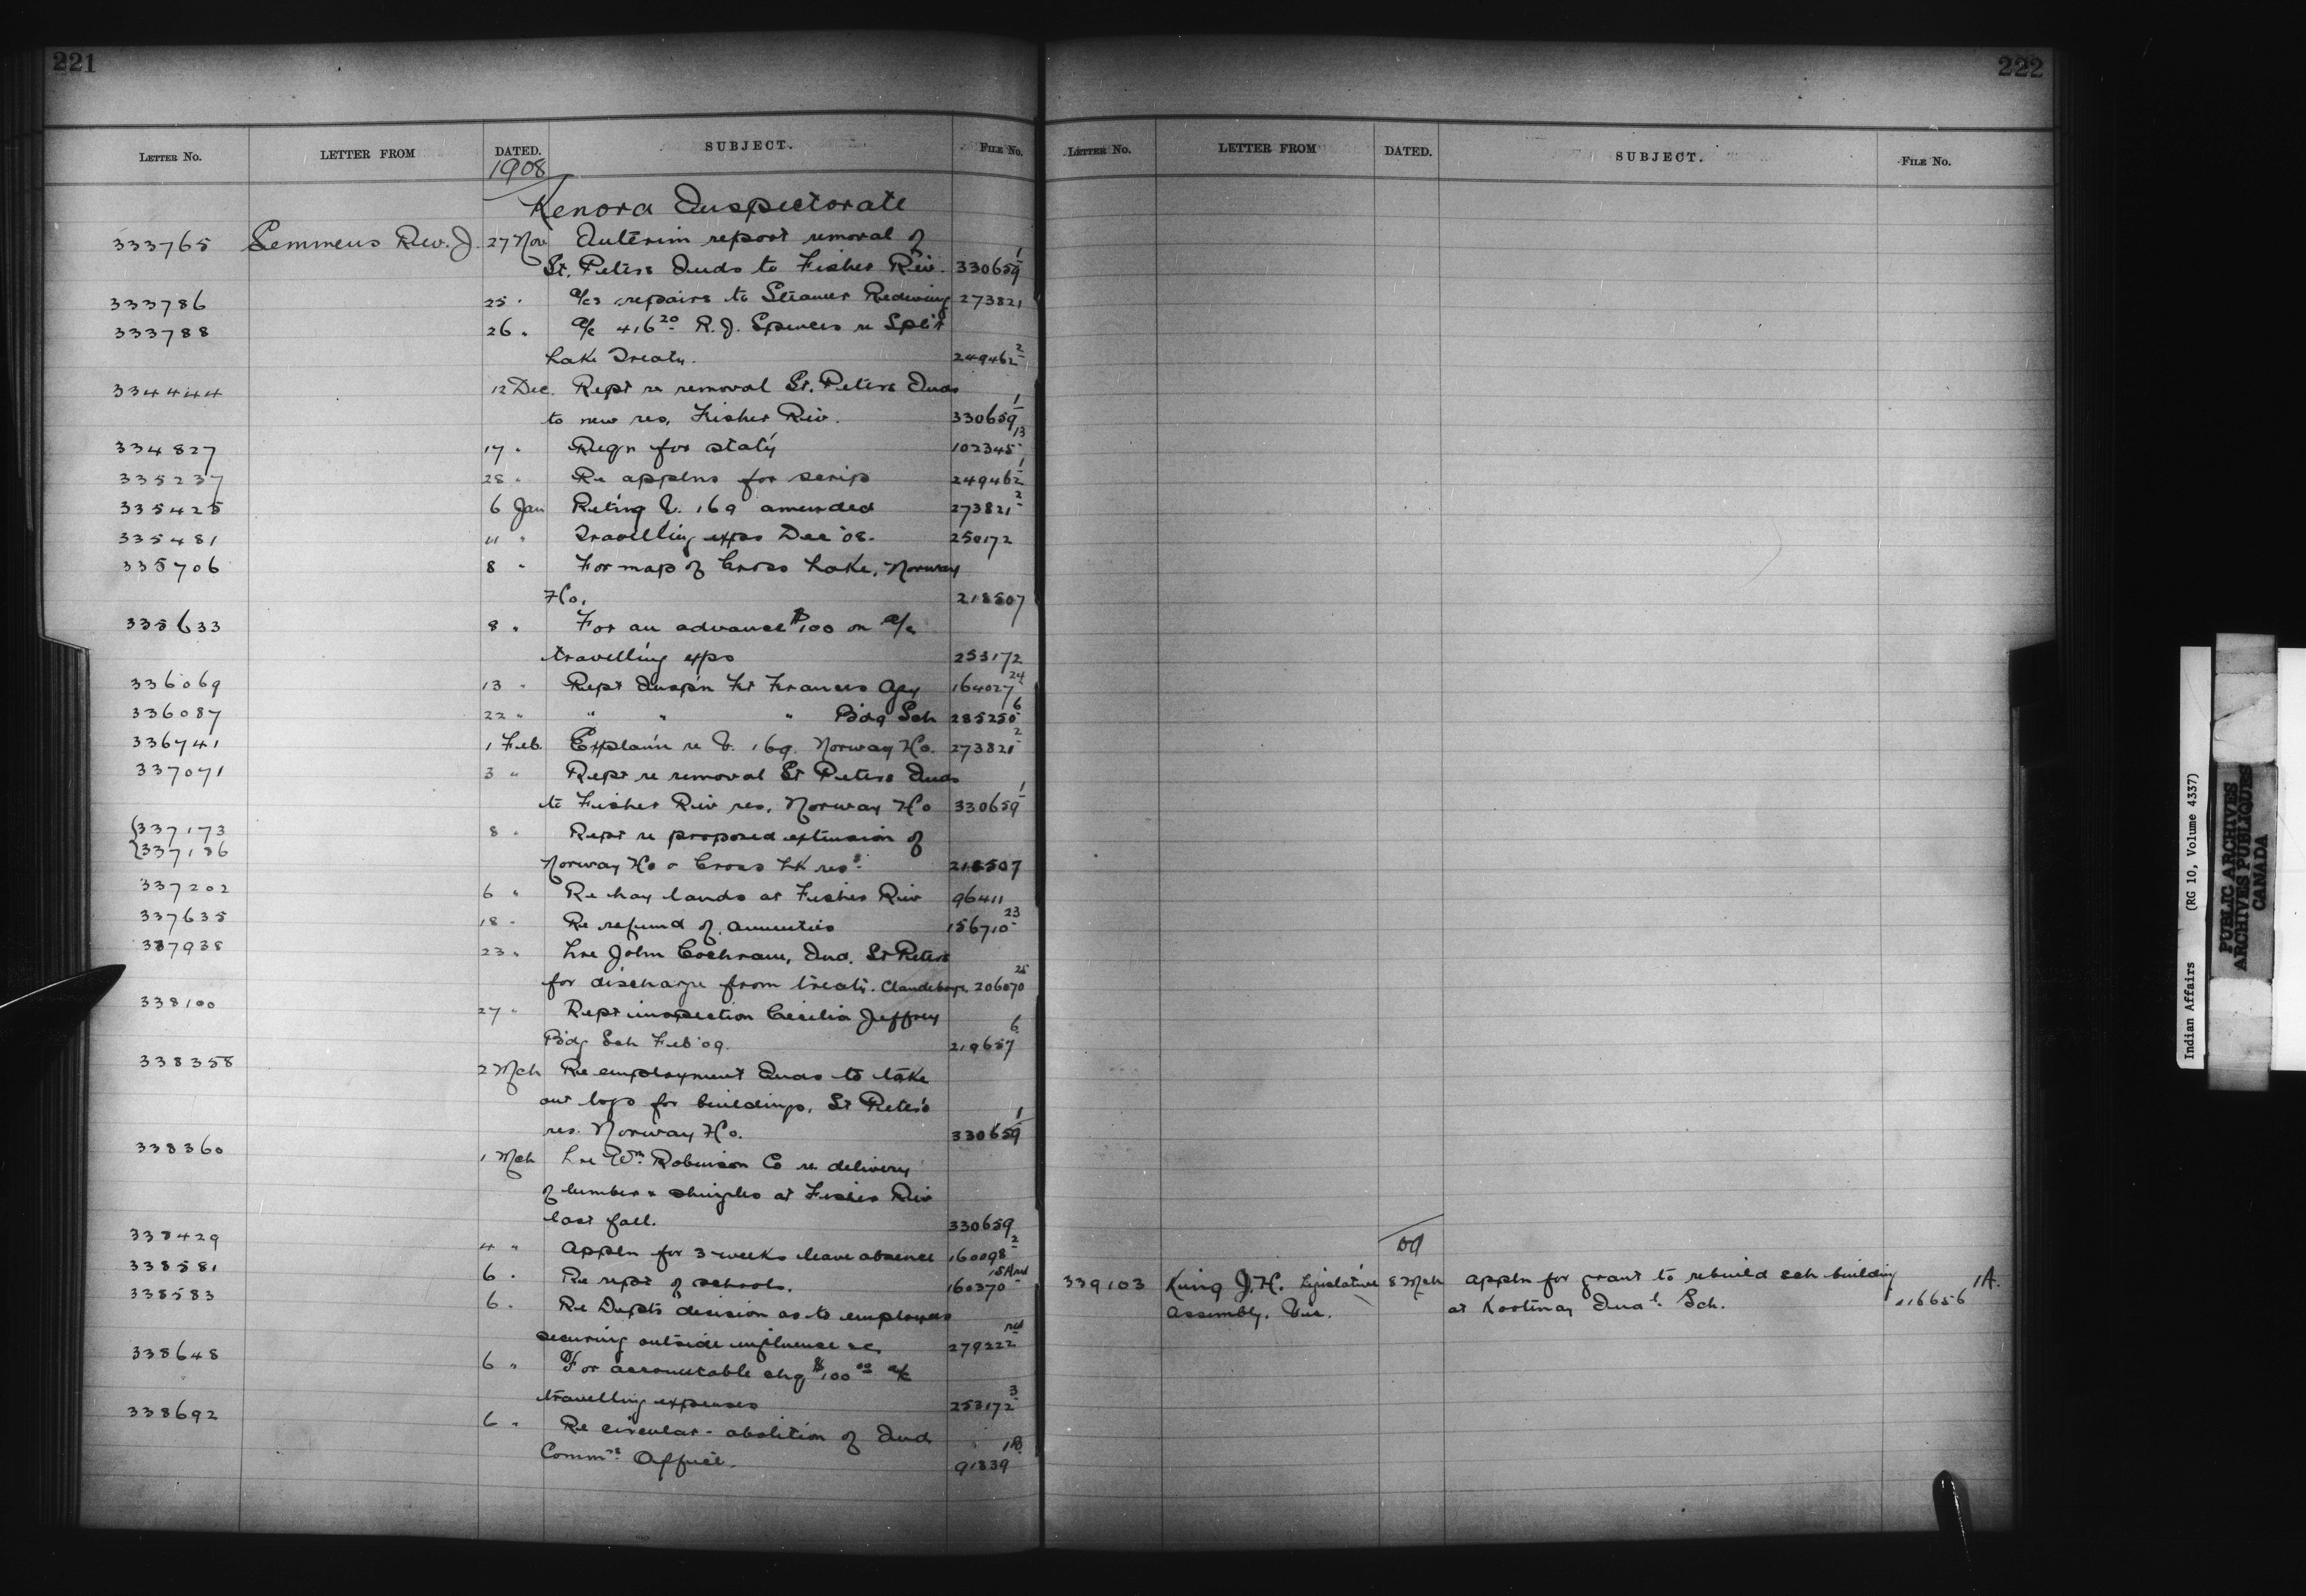 221
LETTER NO. LETTER FROM DATED. SUBJECT. FILE NO.
1908
Kenora Inspectorate
333765 Semmens Rev. J. 27 Nov Interim report removal of
St. Peters Inds to Fisher Riv. 330659 1
333786 25 " a/cs repairs to Steamer Redwing 273821
333788 26 " a/c 416 20 R. J. Spencer re Split
Lake Treaty. 249462 2
334444 12 Dec. Rept re removal St. Peters Inds
to new res, Fisher Riv. 330659 1
334827 17 " Reqn for stat'y 102345 13
335237 28 " Re applns for scrip 249462 1
335425 6 Jan Ret'ing V. 169 amended 273821 2
335481 11 " Travelling exps Dec '08. 250172
335706 8 " For map of Cross Lake, Norway
Ho. 218507
335633 8 " For an advance $100 on a/c
travelling exps 253172
336069 13 " Rept Insp'n Ft Frances Agy 164027 24
336087 22 " " " " B'dg Sch 285250 6
336741 1 Feb. Explan'n re V. 169. Norway Ho. 273821 2
337071 3 " Rept re removal St Peters Inds
to Fisher Riv res, Norway Ho 330659 1
337173 8 " Rept re proposed extension of
337186
Norway Ho & Cross Lk res s. 218507
337202 6 " Re hay lands at Fisher Riv 96411
337635 18 " Re refund of annuities 156710 23
337938 23 " Lre John Cochrane, Ind. St Peters
for discharge from treaty. Clandeboye. 206070 25
338100 27 " Rept inspection Cecilia Jeffrey
B'dg Sch Feb '09. 219657 6
338358 2 Mch Re employment Inds to take
out logs for buildings, St Peter's
res. Norway Ho. 330659 1
338360 1 Mch Lre Wm. Robinson Co re delivery
of lumber & shingles at Fisher Riv
last fall. 330659
338429 4 " Appln for 3 weeks leave absence 160098 2
338581 6 " Re rept of schools. 160370
338583 6 " Re Dept's decision as to employees
securing outside influence &c. 279222
338648 6 " For accountable chq $100 00 a/c
travelling expenses 253172 3
338692 6 " Re circular - abolition of Ind
Commrs Office. 91339 1B.
222
LETTER NO. LETTER FROM DATED. SUBJECT. FILE NO.
09
339103 King J. H. Legislative 8 Mch Appln for grant to rebuild sch building 1A.
Assembly. Vic. at Kootenay Indal. Sch. 116656
Indian Affairs (RG 10, Volume 4337)
PUBLIC ARCHIVES
ARCHIVES PUBLIQUES
CANADA